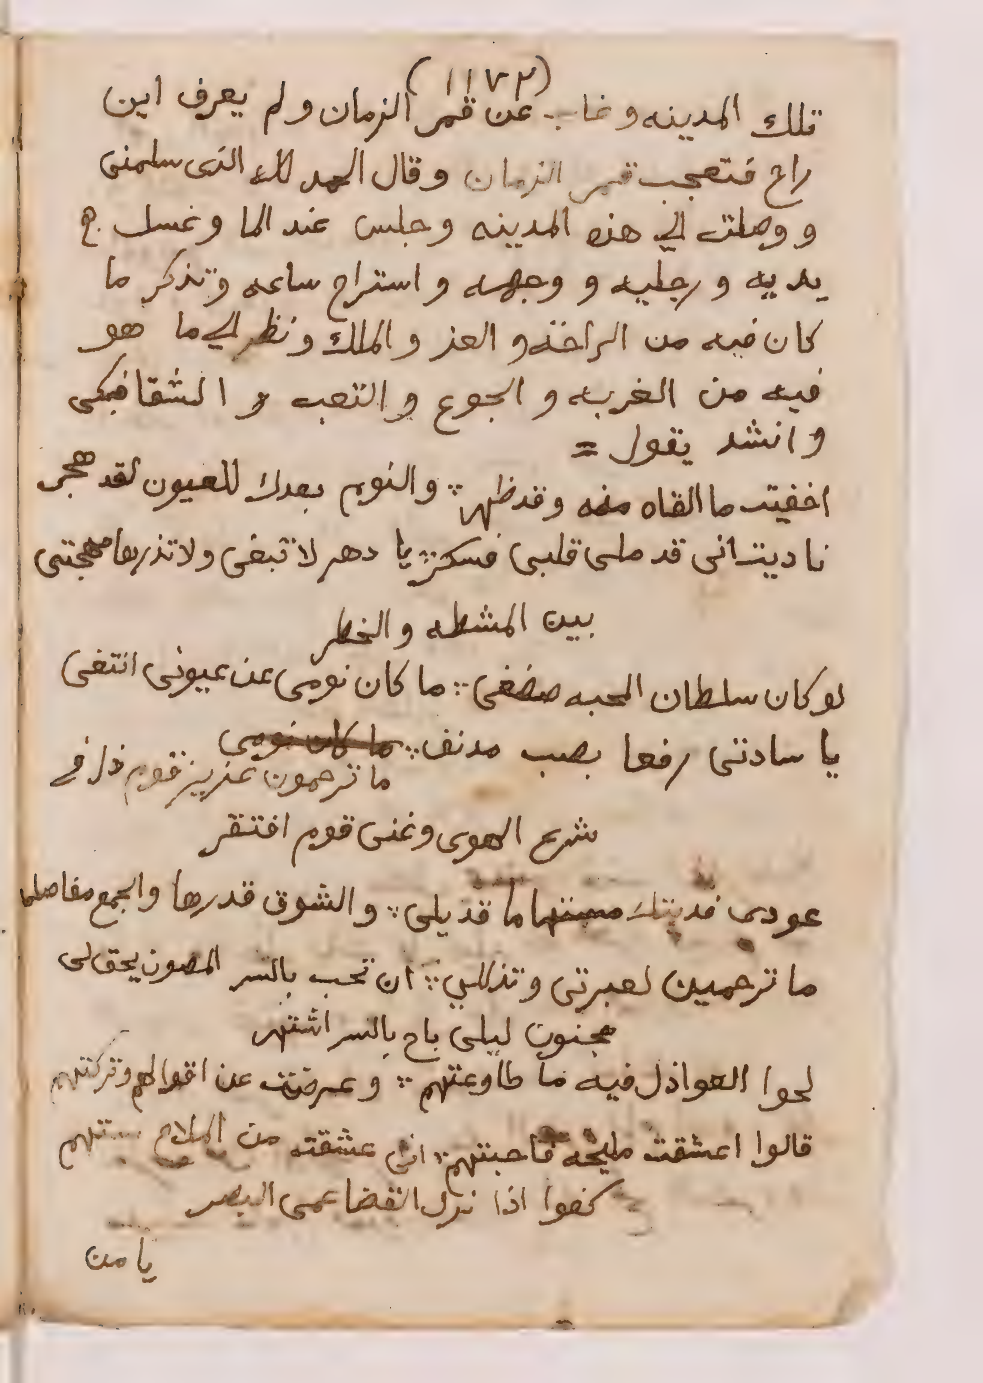 (١١٧٢)
تلك المدينه وغاب عن قمر الزمان ولم يعرف اين
راح فتعجب قمر الزمان وقال الحمد لله الذى سلمنى
ووصلت الي هذه المدينه وجلس عند الما وغسل
يديه ورجليه ووجهه واستراح ساعه وتذكر ما
كان فيه من الراحه والعز والملك ونظر الي ما هو
فيه من الغربه والجوع والتعب والشقا فبكى
وانشد يقول =
اخفيت ما القاه منه وقد ظهر ؞ والنوم بعدك للعيون لقد هجر
ناديت انى قد ملى قلبى فسكر ؞ يا دهر لا تبقى ولا تذر ها مهجتى
بين المشطه والخطر
لو كان سلطان المحبه صففى ؞ ما كان نومى عن عيونى انتفى
يا سادتى رفعا بصب مدنف ؞ ما كان نومى
ما ترحمون عزيز قوم ذل فى
شرع الهوى وغنى قوم افتقر
فديتك ما قد يلى ؞ والشوق قدرها والجمع مفاصلها
ما ترحمين لعبرتى وتذللي ؞ ان تحب بالسر المصون يحق لى
مجنون ليلى باح بالسر اشتهر
لحوا العواذل فيه ما طاوعتهم ؞ وعرضت عن اقوالهم وتركتهم
قالوا اعشقت مليحه فاجبتهم ؞ انى عشقته من الملاح
كفوا اذا نزل القضا عمى البصر
يا من